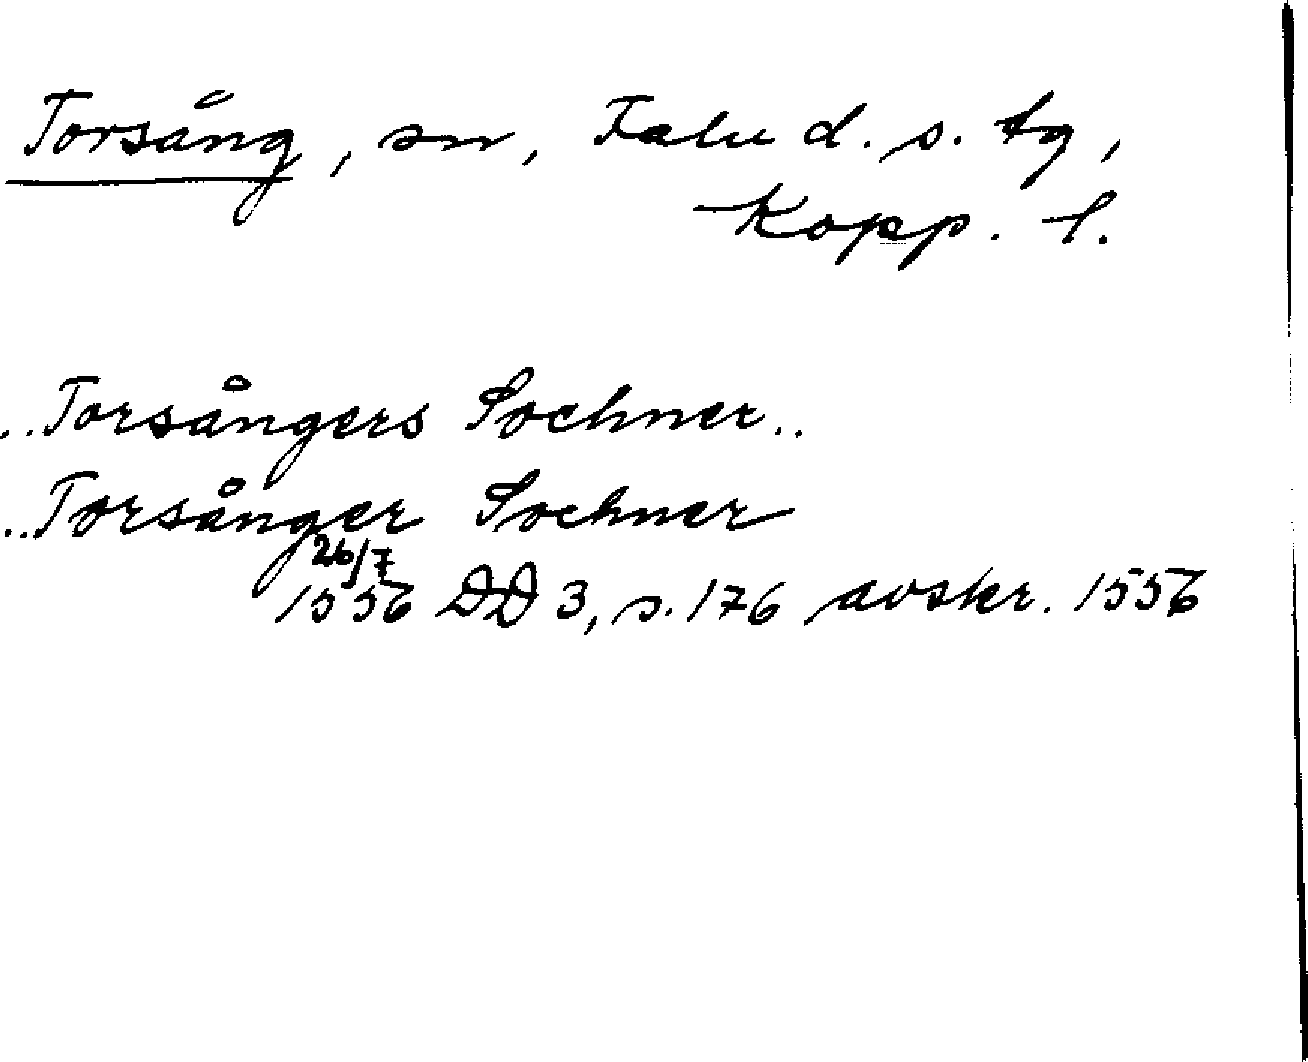 Torsång, sn, Falu d. s. tg,
Kopp. l.
..Torsångers Sochner..
..Torsånger Sochner
26/7
1556 DD 3, s. 176 avskr. 1556